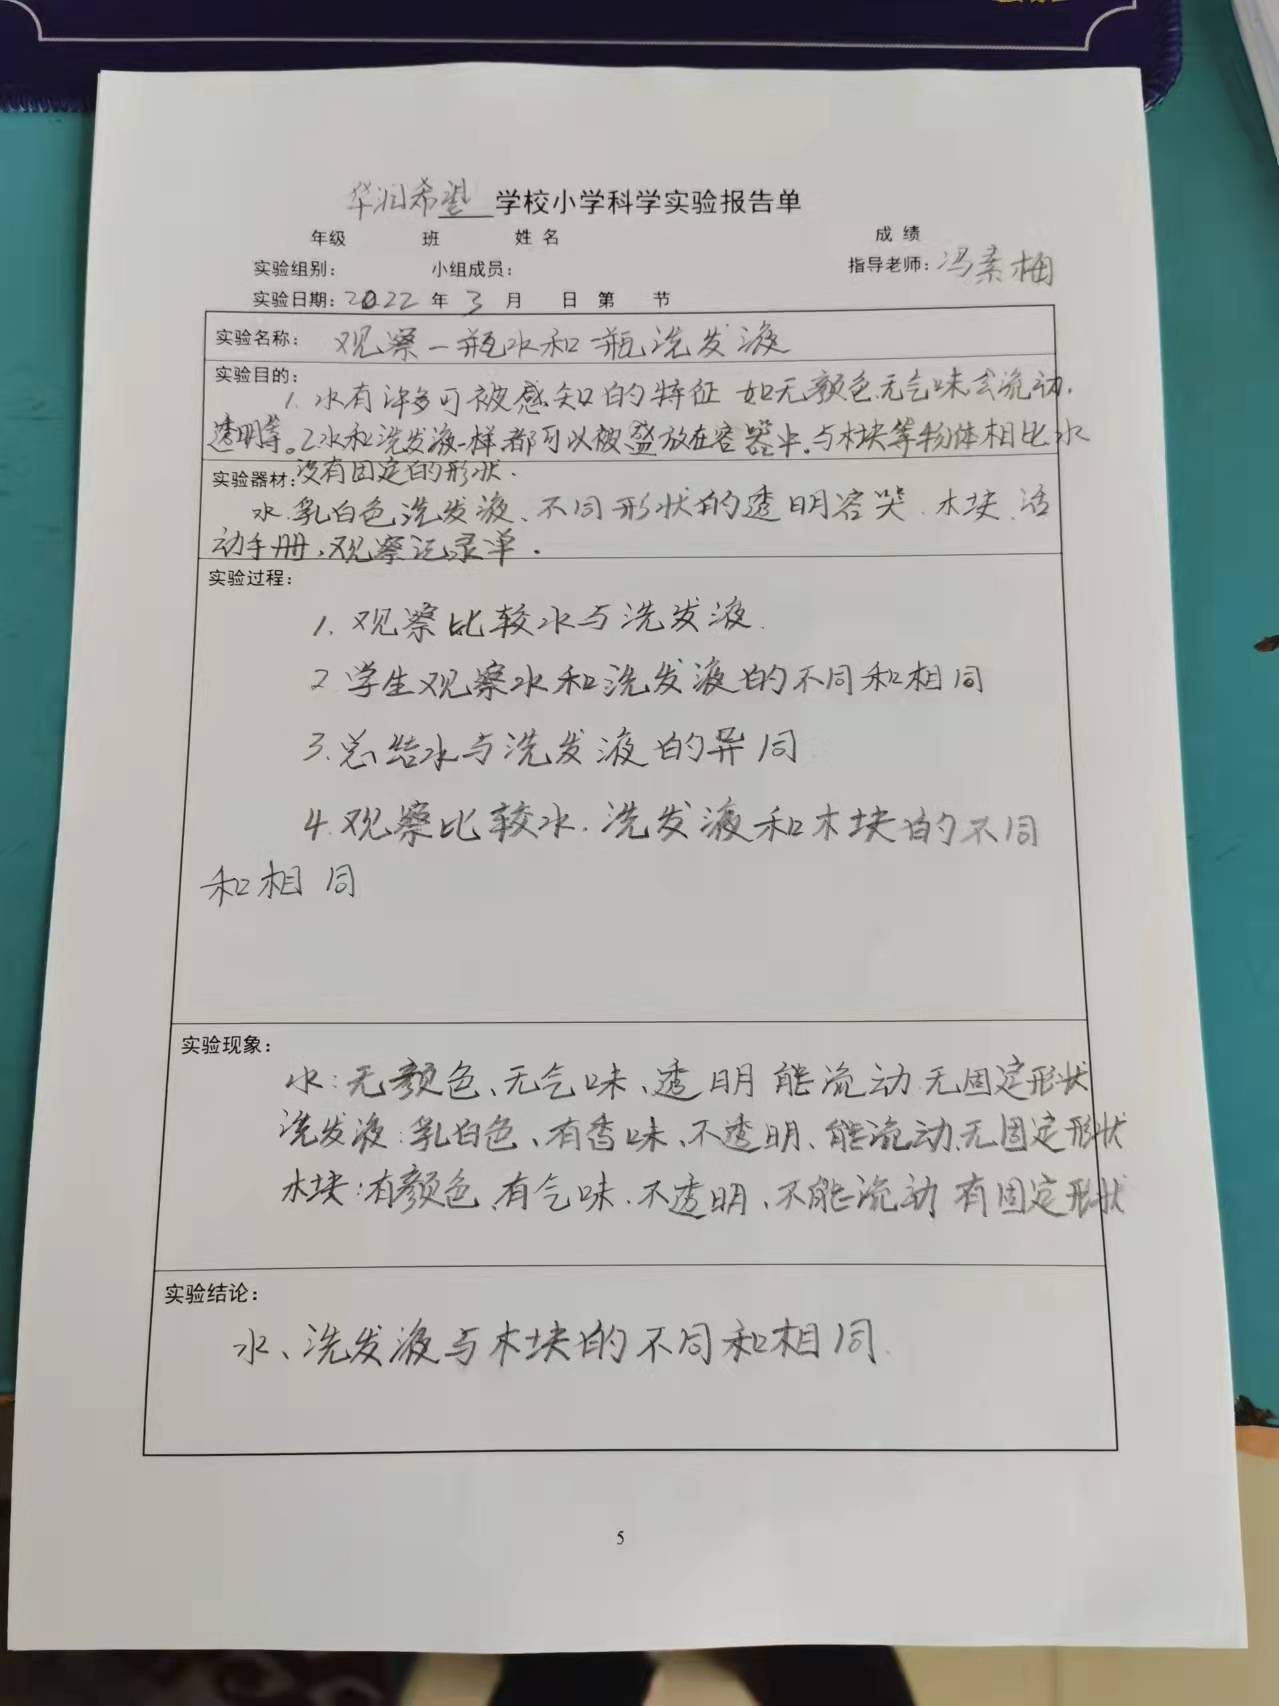 华润希望 学校小学科学实验报告单
年级 班 姓名 成绩
实验组别: 小组成员: 指导老师:冯素梅
实验日期:2022 年 3 月 日 第 节
实验名称: 观察一瓶水和一瓶洗发液
实验目的:
1.水有许多可被感知的特征 如无颜色.无气味会流动.
透明等。2.水和洗发液一样都可以被盛放在容器中.与木块等物体相比水
没有固定的形状.
实验器材:
水.乳白色洗发液、不同形状的透明容器.木块.活
动手册、观察记录单.
实验过程:
1.观察比较水与洗发液.
2 学生观察水和洗发液的不同和相同
3.总结水与洗发液的异同
4.观察比较水.洗发液和木块的不同
和相同
实验现象:
水:无颜色、无气味、透明 能流动 无固定形状
洗发液:乳白色、有香味、不透明、能流动.无固定形状
木块:有颜色.有气味.不透明、不能流动 有固定形状
实验结论:
水、洗发液与木块的不同和相同.
5